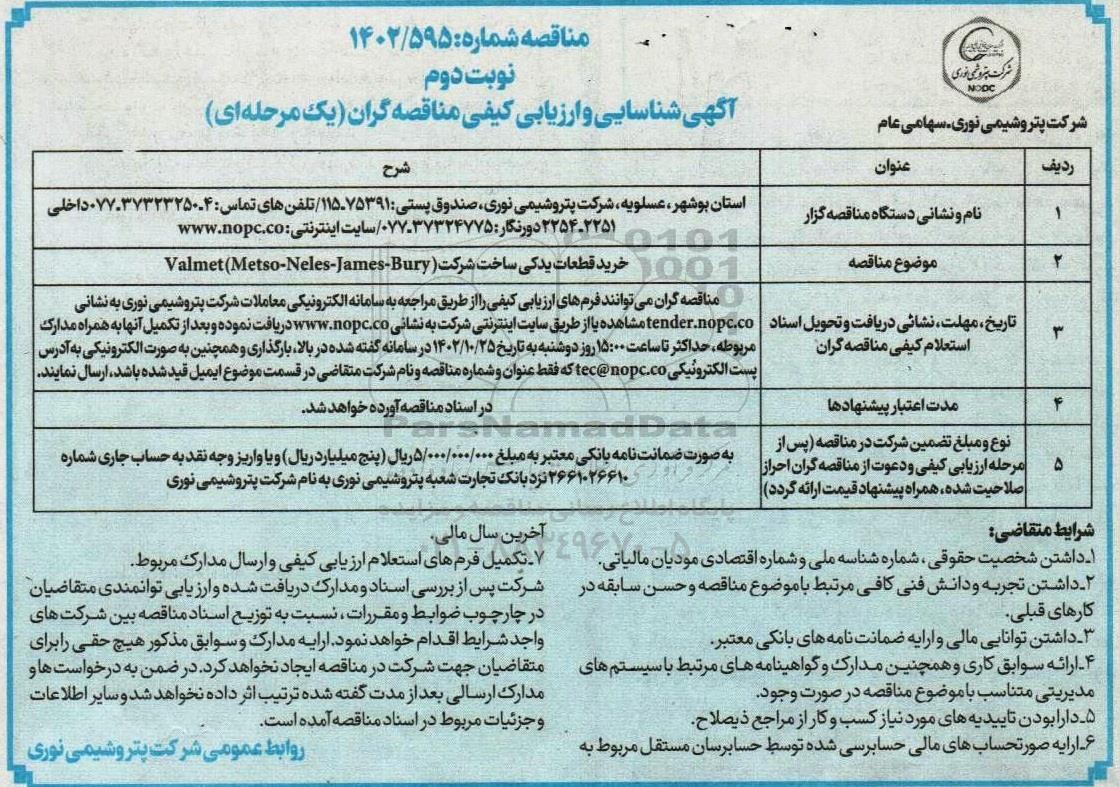 مناقصه شماره: ۱۴۰۲/۵۹۵
نوبت دوم
آگهی شناسایی و ارزیابی کیفی مناقصه گران (یک مرحله‌ای)
شرکت پتروشیمی نوری
NOPC
شرکت پتروشیمی نوری ـ سهامی عام
ردیف عنوان شرح
۱ نام و نشانی دستگاه مناقصه گزار
استان بوشهر، عسلویه، شرکت پتروشیمی نوری، صندوق پستی: ۷۵۳۹۱ـ۱۱۵/ تلفن های تماس: ۴ـ۳۷۳۲۳۲۵۰ـ۰۷۷ داخلی
۲۲۵۱ـ۲۲۵۴ دورنگار: ۳۷۳۲۴۷۷۵ـ۰۷۷/ سایت اینترنتی: www.nopc.co
۲ موضوع مناقصه
خرید قطعات یدکی ساخت شرکت Valmet (Metso-Neles-James-Bury)
۳ تاریخ، مهلت، نشانی دریافت و تحویل اسناد
استعلام کیفی مناقصه گران
مناقصه گران می توانند فرم های ارزیابی کیفی را از طریق مراجعه به سامانه الکترونیکی معاملات شرکت پتروشیمی نوری به نشانی
tender.nopc.co مشاهده یا از طریق سایت اینترنتی شرکت به نشانی www.nopc.co دریافت نموده و بعد از تکمیل آنها به همراه مدارک
مربوطه، حداکثر تا ساعت ۱۵:۰۰ روز دوشنبه به تاریخ ۱۴۰۲/۱۰/۲۵ در سامانه گفته شده در بالا، بارگذاری و همچنین به صورت الکترونیکی به آدرس
پست الکترونیکی tec@nopc.co که فقط عنوان و شماره مناقصه و نام شرکت متقاضی در قسمت موضوع ایمیل قید شده باشد، ارسال نمایند.
۴ مدت اعتبار پیشنهادها
در اسناد مناقصه آورده خواهد شد.
۵ نوع و مبلغ تضمین شرکت در مناقصه (پس از
مرحله ارزیابی کیفی و دعوت از مناقصه گران احراز
صلاحیت شده، همراه پیشنهاد قیمت ارائه گردد)
به صورت ضمانت نامه بانکی معتبر به مبلغ ۵/۰۰۰/۰۰۰/۰۰۰ ریال (پنج میلیارد ریال) و یا واریز وجه نقد به حساب جاری شماره
۲۶۶۱۰۲۶۶۱۰ نزد بانک تجارت شعبه پتروشیمی نوری به نام شرکت پتروشیمی نوری
ParsNamadData
پایگاه اطلاع رسانی مناقصه و مزایده
شرایط متقاضی:
۱ـ داشتن شخصیت حقوقی، شماره شناسه ملی و شماره اقتصادی مودیان مالیاتی.
۲ـ داشتن تجربه و دانش فنی کافی مرتبط با موضوع مناقصه و حسن سابقه در
کارهای قبلی.
۳ـ داشتن توانایی مالی و ارایه ضمانت نامه های بانکی معتبر.
۴ـ ارائه سوابق کاری و همچنین مدارک و گواهینامه های مرتبط با سیستم های
مدیریتی متناسب با موضوع مناقصه در صورت وجود.
۵ـ دارا بودن تاییدیه های مورد نیاز کسب و کار از مراجع ذیصلاح.
۶ـ ارایه صورتحساب های مالی حسابرسی شده توسط حسابرسان مستقل مربوط به
آخرین سال مالی.
۷ـ تکمیل فرم های استعلام ارزیابی کیفی و ارسال مدارک مربوط.
شرکت پس از بررسی اسناد و مدارک دریافت شده و ارزیابی توانمندی متقاضیان
در چارچوب ضوابط و مقررات، نسبت به توزیع اسناد مناقصه بین شرکت های
واجد شرایط اقدام خواهد نمود. ارایه مدارک و سوابق مذکور هیچ حقی را برای
متقاضیان جهت شرکت در مناقصه ایجاد نخواهد کرد. در ضمن به درخواست ها و
مدارک ارسالی بعد از مدت گفته شده ترتیب اثر داده نخواهد شد و سایر اطلاعات
و جزئیات مربوط در اسناد مناقصه آمده است.
روابط عمومی شرکت پتروشیمی نوری